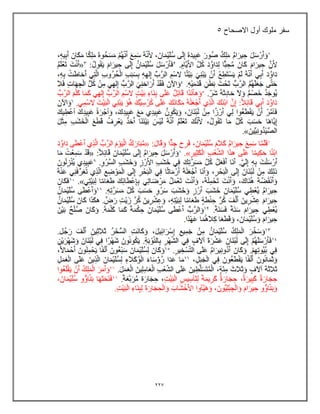 سفر ملوك أول الاصحاح ٥
١وَأَرْسَلَ حِيرَامُ مَلِكُ صُورَ عَبِيدَهُ إِلَى سُلَيْمَانَ، لأَنَّهُ سَمِعَ أَنَّهُمْ مَسَحُوهُ مَلِكًا مَكَانَ أَبِيهِ،
لأَنَّ حِيرَامَ كَانَ مُحِبًّا لِدَاوُدَ كُلَّ الأَيَّامِ. ٢فَأَرْسَلَ سُلَيْمَانُ إِلَى حِيرَامَ يَقُولُ: ٣«أَنْتَ تَعْلَمُ
دَاوُدَ أَبِي أَنَّهُ لَمْ يَسْتَطِعْ أَنْ يَبْنِيَ بَيْتًا لاسْمِ الرَّبِّ إِلهِهِ بِسَبَبِ الْحُرُوبِ الَّتِي أَحَاطَتْ بِهِ،
حَتَّى جَعَلَهُمُ الرَّبُّ تَحْتَ بَطْنِ قَدَمَيْهِ. ٤وَالآنَ فَقَدْ أَرَاحَنِيَ الرَّبُّ إِلهِي مِنْ كُلِّ الْجِهَاتِ فَلاَ
يُوجَدُ خَصْمٌ وَلاَ حَادِثَةُ شَرّ. ٥وَهأَنَذَا قَائِلٌ عَلَى بِنَاءِ بَيْتٍ لاسْمِ الرَّبِّ إِلهِي كَمَا كَلَّمَ الرَّبُّ
دَاوُدَ أَبِي قَائِلاً: إِنَّ ابْنَكَ الَّذِي أَجْعَلُهُ مَكَانَكَ عَلَى كُرْسِيِّكَ هُوَ يَبْنِي الْبَيْتَ لاسْمِي. ٦وَالآنَ
فَأْمُرْ أَنْ يَقْطَعُوا لِي أَرْزًا مِنْ لُبْنَانَ، وَيَكُونُ عَبِيدِي مَعَ عَبِيدِكَ، وَأُجْرَةُ عَبِيدِكَ أُعْطِيكَ
إِيَّاهَا حَسَبَ كُلِّ مَا تَقُولُ، لأَنَّكَ تَعْلَمُ أَنَّهُ لَيْسَ بَيْنَنَا أَحَدٌ يَعْرِفُ قَطْعَ الْخَشَبِ مِثْلَ
الصِّيْدُونِيِّينَ».
٧فَلَمَّا سَمِعَ حِيرَامُ كَلاَمَ سُلَيْمَانَ، فَرِحَ جِدًّا وَقَالَ: «مُبَارَكٌ الْيَوْمَ الرَّبُّ الَّذِي أَعْطَى دَاوُدَ
ابْنًا حَكِيمًا عَلَى هذَا الشَّعْبِ الْكَثِيرِ». ٨وَأَرْسَلَ حِيرَامُ إِلَى سُلَيْمَانَ قَائِلاً: «قَدْ سَمِعْتُ مَا
أَرْسَلْتَ بِهِ إِلَيَّ. أَنَا أَفْعَلُ كُلَّ مَسَرَّتِكَ فِي خَشَبِ الأَرْزِ وَخَشَبِ السَّرْوِ. ٩عَبِيدِي يُنْزِلُونَ
ذلِكَ مِنْ لُبْنَانَ إِلَى الْبَحْرِ، وَأَنَا أَجْعَلُهُ أَرْمَاثًا فِي الْبَحْرِ إِلَى الْمَوْضِعِ الَّذِي تُعَرِّفُنِي عَنْهُ
وَأَنْفُضُهُ هُنَاكَ، وَأَنْتَ تَحْمِلُهُ، وَأَنْتَ تَعْمَلُ مَرْضَاتِي بِإِعْطَائِكَ طَعَامًا لِبَيْتِي». ١٠فَكَانَ
حِيرَامُ يُعْطِي سُلَيْمَانَ خَشَبَ أَرْزٍ وَخَشَبَ سَرْوٍ حَسَبَ كُلِّ مَسَرَّتِهِ. ١١وَأَعْطَى سُلَيْمَانُ
حِيرَامَ عِشْرِينَ أَلْفَ كُرِّ حِنْطَةٍ طَعَامًا لِبَيْتِهِ، وَعِشْرِينَ كُرَّ زَيْتِ رَضٍّ. هكَذَا كَانَ سُلَيْمَانُ
يُعْطِي حِيرَامَ سَنَةً فَسَنَةً. ١٢وَالرَّبُّ أَعْطَى سُلَيْمَانَ حِكْمَةً كَمَا كَلَّمَهُ. وَكَانَ صُلْحٌ بَيْنَ
حِيرَامَ وَسُلَيْمَانَ، وَقَطَعَا كِلاَهُمَا عَهْدًا.
١٣وَسَخَّرَ الْمَلِكُ سُلَيْمَانُ مِنْ جَمِيعِ إِسْرَائِيلَ، وَكَانَتِ السُّخَرُ ثَلاَثِينَ أَلْفَ رَجُل.
١٤فَأَرْسَلَهُمْ إِلَى لُبْنَانَ عَشْرَةَ آلاَفٍ فِي الشَّهْرِ بِالنَّوْبَةِ. يَكُونُونَ شَهْرًا فِي لُبْنَانَ وَشَهْرَيْنِ
فِي بُيُوتِهِمْ. وَكَانَ أَدُونِيرَامُ عَلَى التَّسْخِيرِ. ١٥وَكَانَ لِسُلَيْمَانَ سَبْعُونَ أَلْفًا يَحْمِلُونَ أَحْمَالاً،
وَثَمَانُونَ أَلْفًا يَقْطَعُونَ فِي الْجَبَلِ، ١٦مَا عَدَا رُؤَسَاءَ الْوُكَلاَءِ لِسُلَيْمَانَ الَّذِينَ عَلَى الْعَمَلِ
ثَلاَثَةَ آلاَفٍ وَثَلاَثَ مِئَةٍ، الْمُتَسَلِّطِينَ عَلَى الشَّعْبِ الْعَامِلِينَ الْعَمَلَ. ١٧وَأَمَرَ الْمَلِكُ أَنْ يَقْلَعُوا
حِجَارَةً كَبِيرَةً، حِجَارَةً كَرِيمَةً لِتَأْسِيسِ الْبَيْتِ، حِجَارَةً مُرَبَّعَةً. ١٨فَنَحَتَهَا بَنَّاؤُو سُلَيْمَانَ،
وَبَنَّاؤُو حِيرَامَ وَالْجِبْلِيُّونَ، وَهَيَّأُوا الأَخْشَابَ وَالْحِجَارَةَ لِبِنَاءِ الْبَيْتِ.
٢٢٧